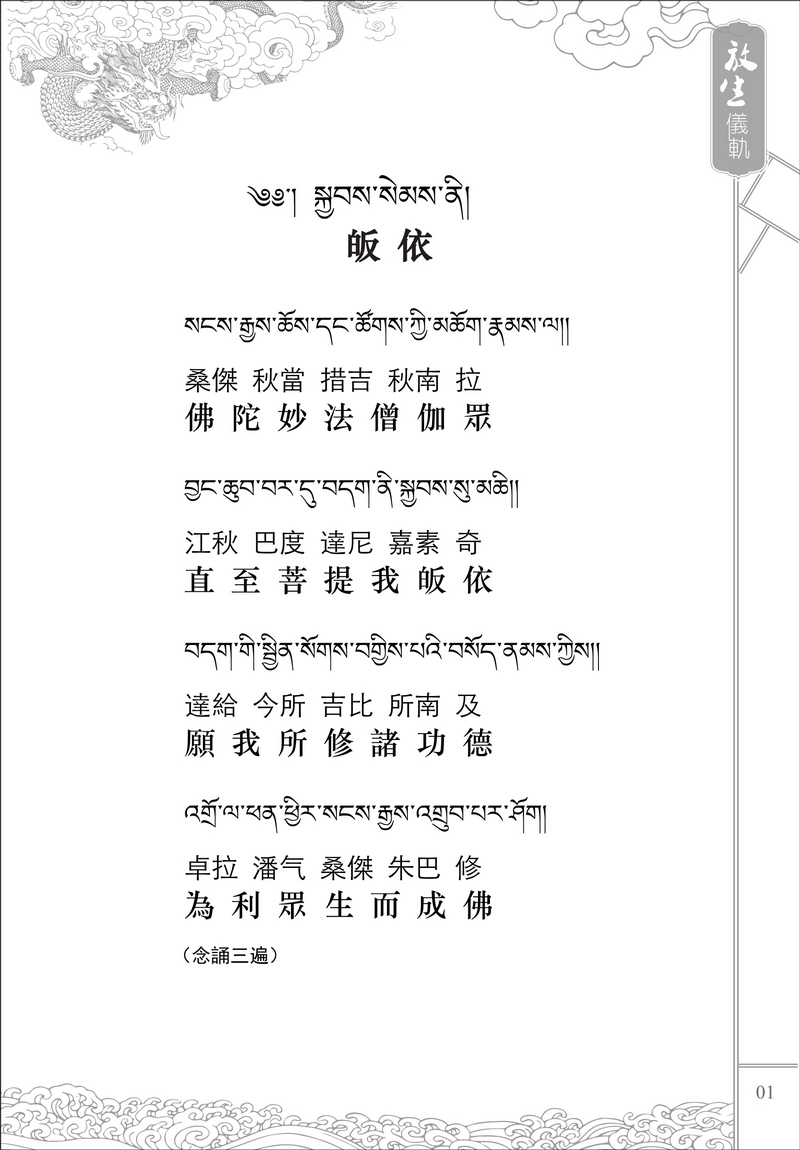 放生儀軌
༄༅། སྐྱབས་སེམས་ནི།
皈依
སངས་རྒྱས་ཆོས་དང་ཚོགས་ཀྱི་མཆོག་རྣམས་ལ།།
桑傑 秋當 措吉 秋南 拉
佛陀妙法僧伽眾
བྱང་ཆུབ་བར་དུ་བདག་ནི་སྐྱབས་སུ་མཆི།།
江秋 巴度 達尼 嘉素 奇
直至菩提我皈依
བདག་གི་སྦྱིན་སོགས་བགྱིས་པའི་བསོད་ནམས་ཀྱིས།།
達給 今所 吉比 所南 及
願我所修諸功德
འགྲོ་ལ་ཕན་ཕྱིར་སངས་རྒྱས་འགྲུབ་པར་ཤོག།
卓拉 潘气 桑傑 朱巴 修
為利眾生而成佛
（念誦三遍）
01